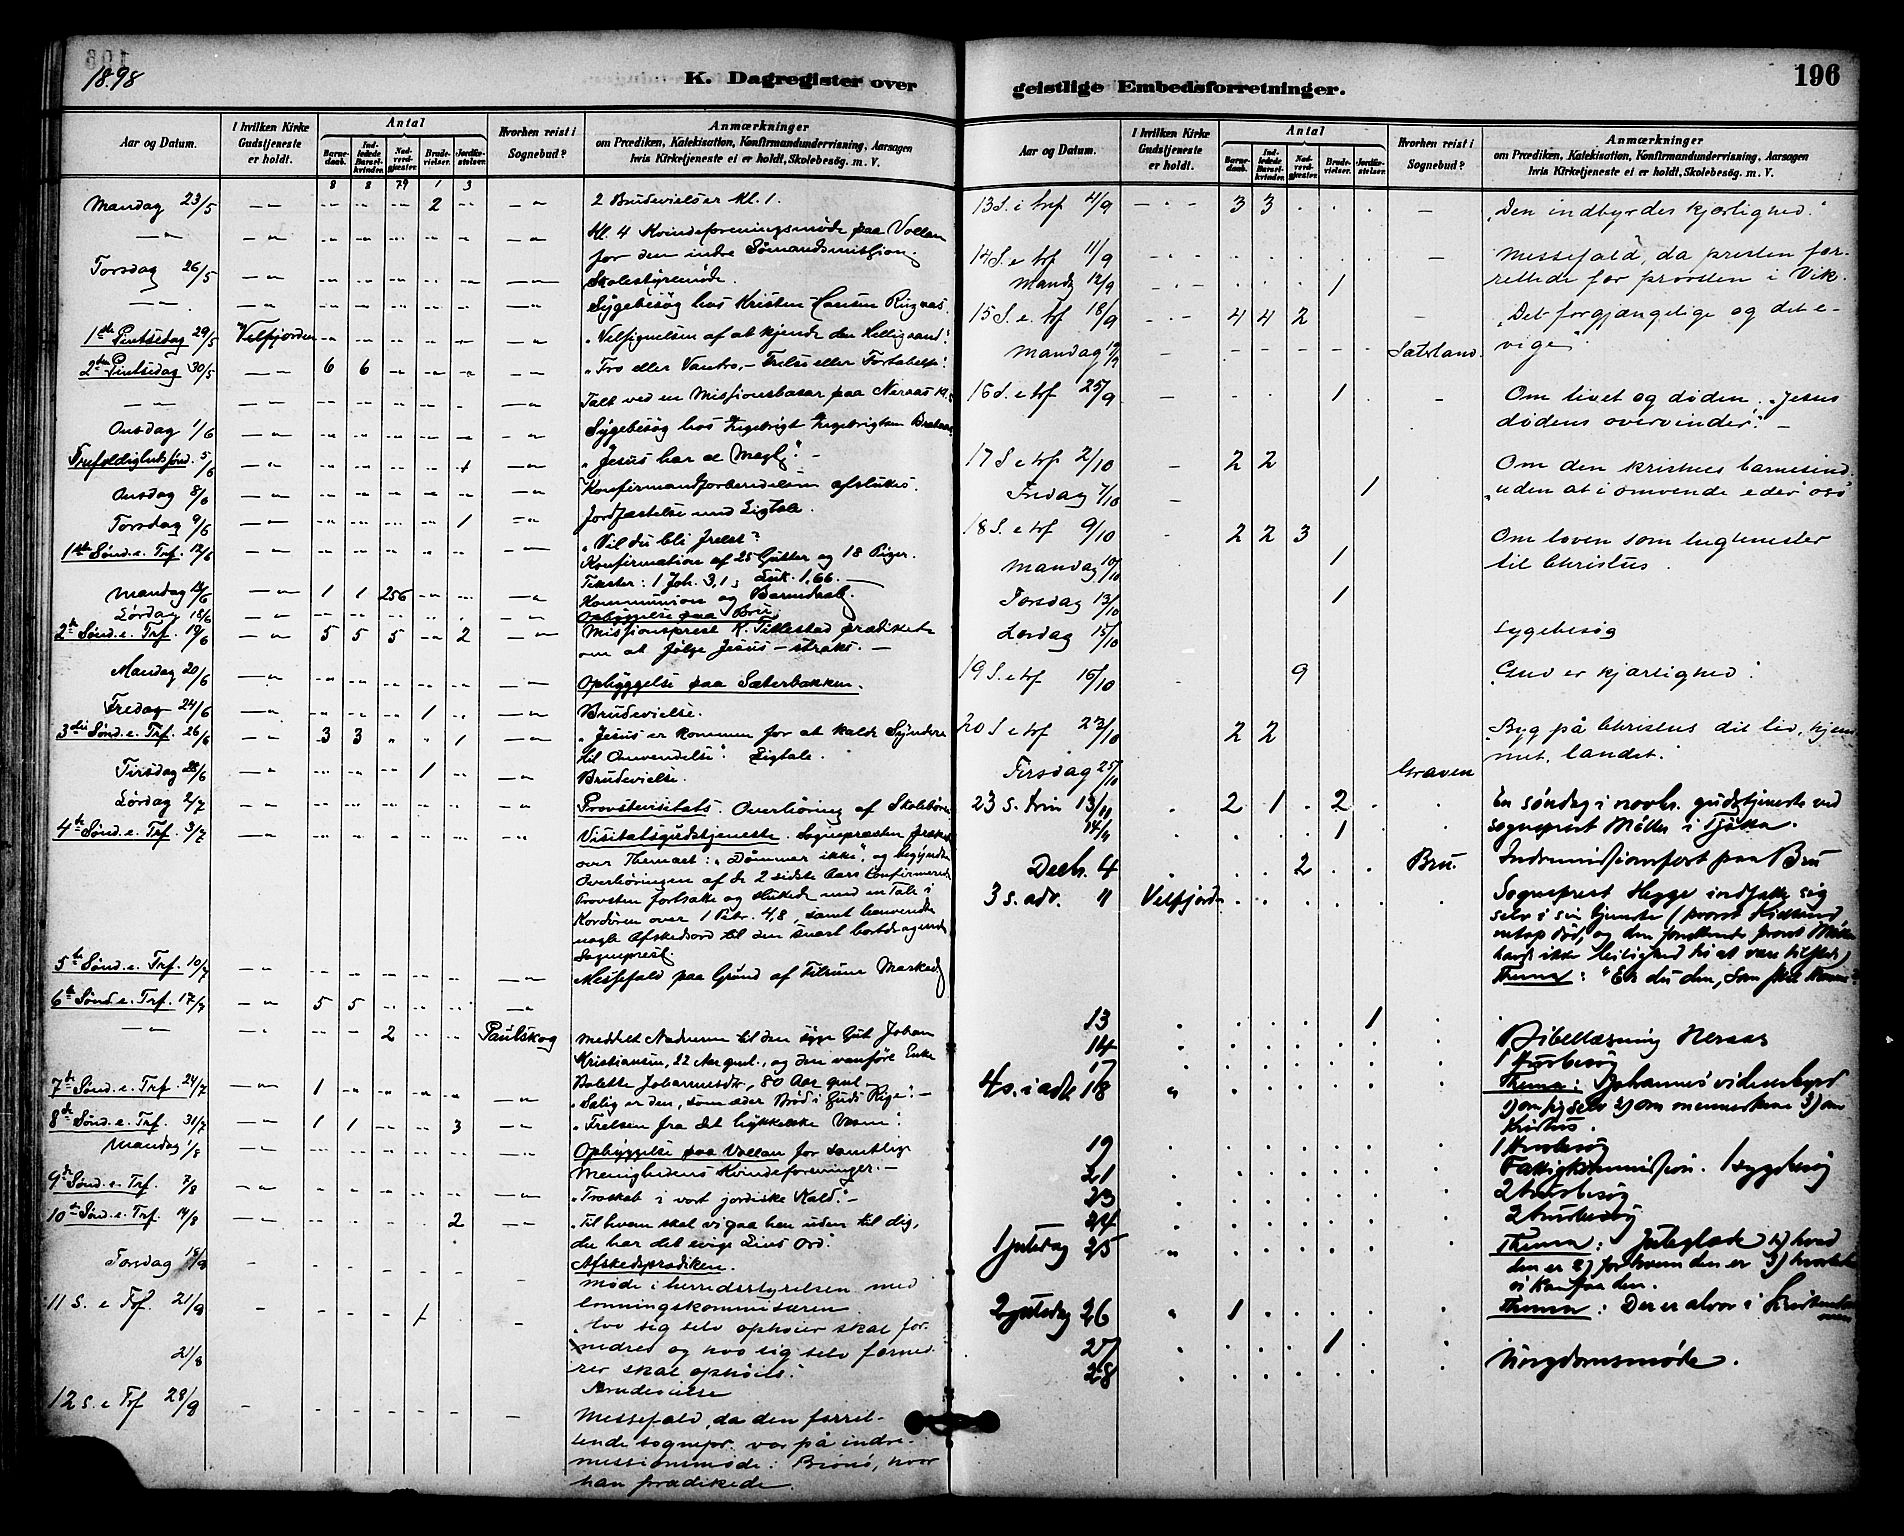 1898
K. Dagregister over
Aar og Datum.
I hvilken Kirke Gudstjeneste er holdt.
Antal
Barnedaab.
Indledede Barselkvinder.
Nadverdgjester.
Brudevielser.
Jordfæstelser.
Hvorhen reist i Sognebud?
Anmærkninger
om Prædiken, Katekisation, Konfirmandundervisning, Aarsagen
hvis Kirketjeneste ei er holdt, Skolebesøg. m. V.
8 8 79 1 3
Mandag 23/5 2 2 Brudevielser kl. 1.
Kl. 4 Kvindeforeningsmøde paa Vollan
for den indre Sømandsmission.
Torsdag 26/5 Skolestyremøde.
Sygebesøg hos Kristen Hansen Ringnæs.
1ste Pintsedag 29/5 Velfjorden "Velsignelsen af at kjende den Helligaand".
2den Pintsedag 30/5 6 6 "Tro eller Vantro, – Frelse eller Fortabelse".
Talt ved en Missionsbasar paa Neraas
Onsdag 1/6 Sygebesøg hos Ingebrigt Ingebrigtsen
Trefoldighedssønd. 5/6 "Jesus har al Magt". –
Onsdag 8/6 Konfirmantforberedelsen afsluttes.
Torsdag 9/6 1 Jordfæstelse med Ligtale.
1ste Sønd. e. Trf. 12/6 "Vil du bli frelst"?
Konfirmation af 25 Gutter og 18 Piger.
Tekster: 1 Joh. 3,1; Luk. 1,66. –
Mandag 13/6 1 1 256 Kommunion og Barnedaab.
Lørdag 18/6 Opbyggelse paa Bru.
2den Sønd. e. Trf. 19/6 5 5 5 2 Missionsprest K. Titlestad prædikete
om at følge Jesus – straks. –
Mandag 20/6 Opbyggelse paa Sæterbakken.
Fredag 24/6 1 Brudevielse.
3die Sønd. e. Trf. 26/6 3 3 1 "Jesus er kommen for at kalde Syndere
til Omvendelse". Ligtale.
Tirsdag 28/6 1 Brudevielse.
Lørdag 2/7 Provstevisitats. Overhøring af Skolebørn
4de Sønd. e. Trf. 3/7 Visitatsgudstjeneste. Sognepræsten præked
over Themaet: "Dømmer ikke", og begyndte
Overhøringen af de 2 sidste Aars Confirmerede
Provsten fortsatte og sluttede med en Tale i
Kordøren over 1 Petr. 4,8, samt henvendte
nogle Afskedsord til den snart bortdragende
Sogneprest.
5te Sønd. e. Trf. 10/7 Messefald paa Grund af Tilrum Marked
6te Sønd. e. Trf. 17/7 5 5
2 Paulskog Meddelt Nadveren til den syge Gut Johan
Kristiansen, 22 Aar gml., og den vanføre Enke
Bolette Johannesdr, 80 Aar gml –
7de Sønd. e. Trf. 24/7 1 "Salig er den, som æder Brød i Guds Rige". –
8de Sønd. e. Trf. 31/7 1 1 3 "Frelsen fra det hykkelske Væsen".
Mandag 1/8 Opbyggelse paa Vollan for samtlige
Menighedens Kvindeforeninger. –
9de Sønd. e. Trf. 7/8 "Troskab i vort jordiske Kald". –
10de Sønd. e. Trf. 14/8 2 "Til hvem skal vi gaa hen uden til dig,
du har det evige Livs Ord".
Afskedsprædiken.
Torsdag 18/8 Møde i herredsstyrelsen med
lønningskommissæren.
11 S. e Trf. 21/8 1 "Hvo sig selv ophøier skal for-
nedres og hvo sig selv forned-
rer skal ophøies".
21/8 Brudevielse
12 S. e Trf 28/8 Messefald, da den forret-
tende sognepr. var på indre-
missionsmøde i Brønø, hvor
han prædikede.
geistlige Embedsforretninger.
196
Aar og Datum.
I hvilken Kirke Gudstjeneste er holdt.
Antal
Barnedaab.
Indledede Barselkvinder.
Nadverdgjester.
Brudevielser.
Jordfæstelser.
Hvorhen reist i Sognebud?
Anmærkninger
om Prædiken, Katekisation, Konfirmandundervisning, Aarsagen
hvis Kirketjeneste ei er holdt, Skolebesøg. m. V.
13 S. e trf 4/9 3 3 "Den indbyrdes kjærlighed".
14 S. e trf 11/9 Messefald, da presten for-
Mandg 12/9 1 rettede for provsten i Vik.
15 S. e. trf 18/9 4 4 2 "Det forgjængelige og det e-
vige".
Mandag 19/9 Sæterland.
16 S. e trf 25/9 1 Om livet og døden. "Jesus
dødens overvinder". –
17 S e trf 2/10 2 2 Om den kristnes barnesind.
Fredag 7/10 1 "uden at i omvende eder" osv
18 S. e trf 9/10 2 2 3 Om loven som tugtemester
Mandag 10/10 1 til Christus.
Torsdag 13/10 1
Lørdag 15/10 Sygebesøg
19 S. e trf 16/10 9 "Gud er kjærlighed".
20 S e trf 23/10 2 2 "Byg på Christus dit liv, hjem-
met, landet".
Tirsdag 25/10 Graven
23 s. trin 13/11 2 1 2 En søndag i novbr. gudstjeneste ved
14/11 1 sogneprest Møller i Tjøtta.
Decb. 4 2 Bru. Indremissionsfort paa Bru
3 s. adv. 11 Velfjorden Sogneprest Hegge indsatte sig
selv i sin tjeneste (provst
netop død, og den provst
havde ikke leilighed til at være tilstede)
Thema: "Er du den, som skal komme?"
13 1
14 Bibellæsning Neraas
17 1 Husbesøg
4 s. i adv. 18 Thema: Johannes vidnesbyrd
1) om sig selv 2) om menneskene 3) om
Kristus.
19 1 Husbesøg
21 Fattigkommission. 1 sygebesøg
23 2 Husbesøg
24 2 Husbesøg
1 juledag 25 Thema: Juleglæde 1) hvad
den er 2) for hvem den er 3) hvorledes
vi kan faa den.
2 juledag 26 1 Thema: Der er alvor i Kristendommen
27 1
28 Ungdomsmøde.